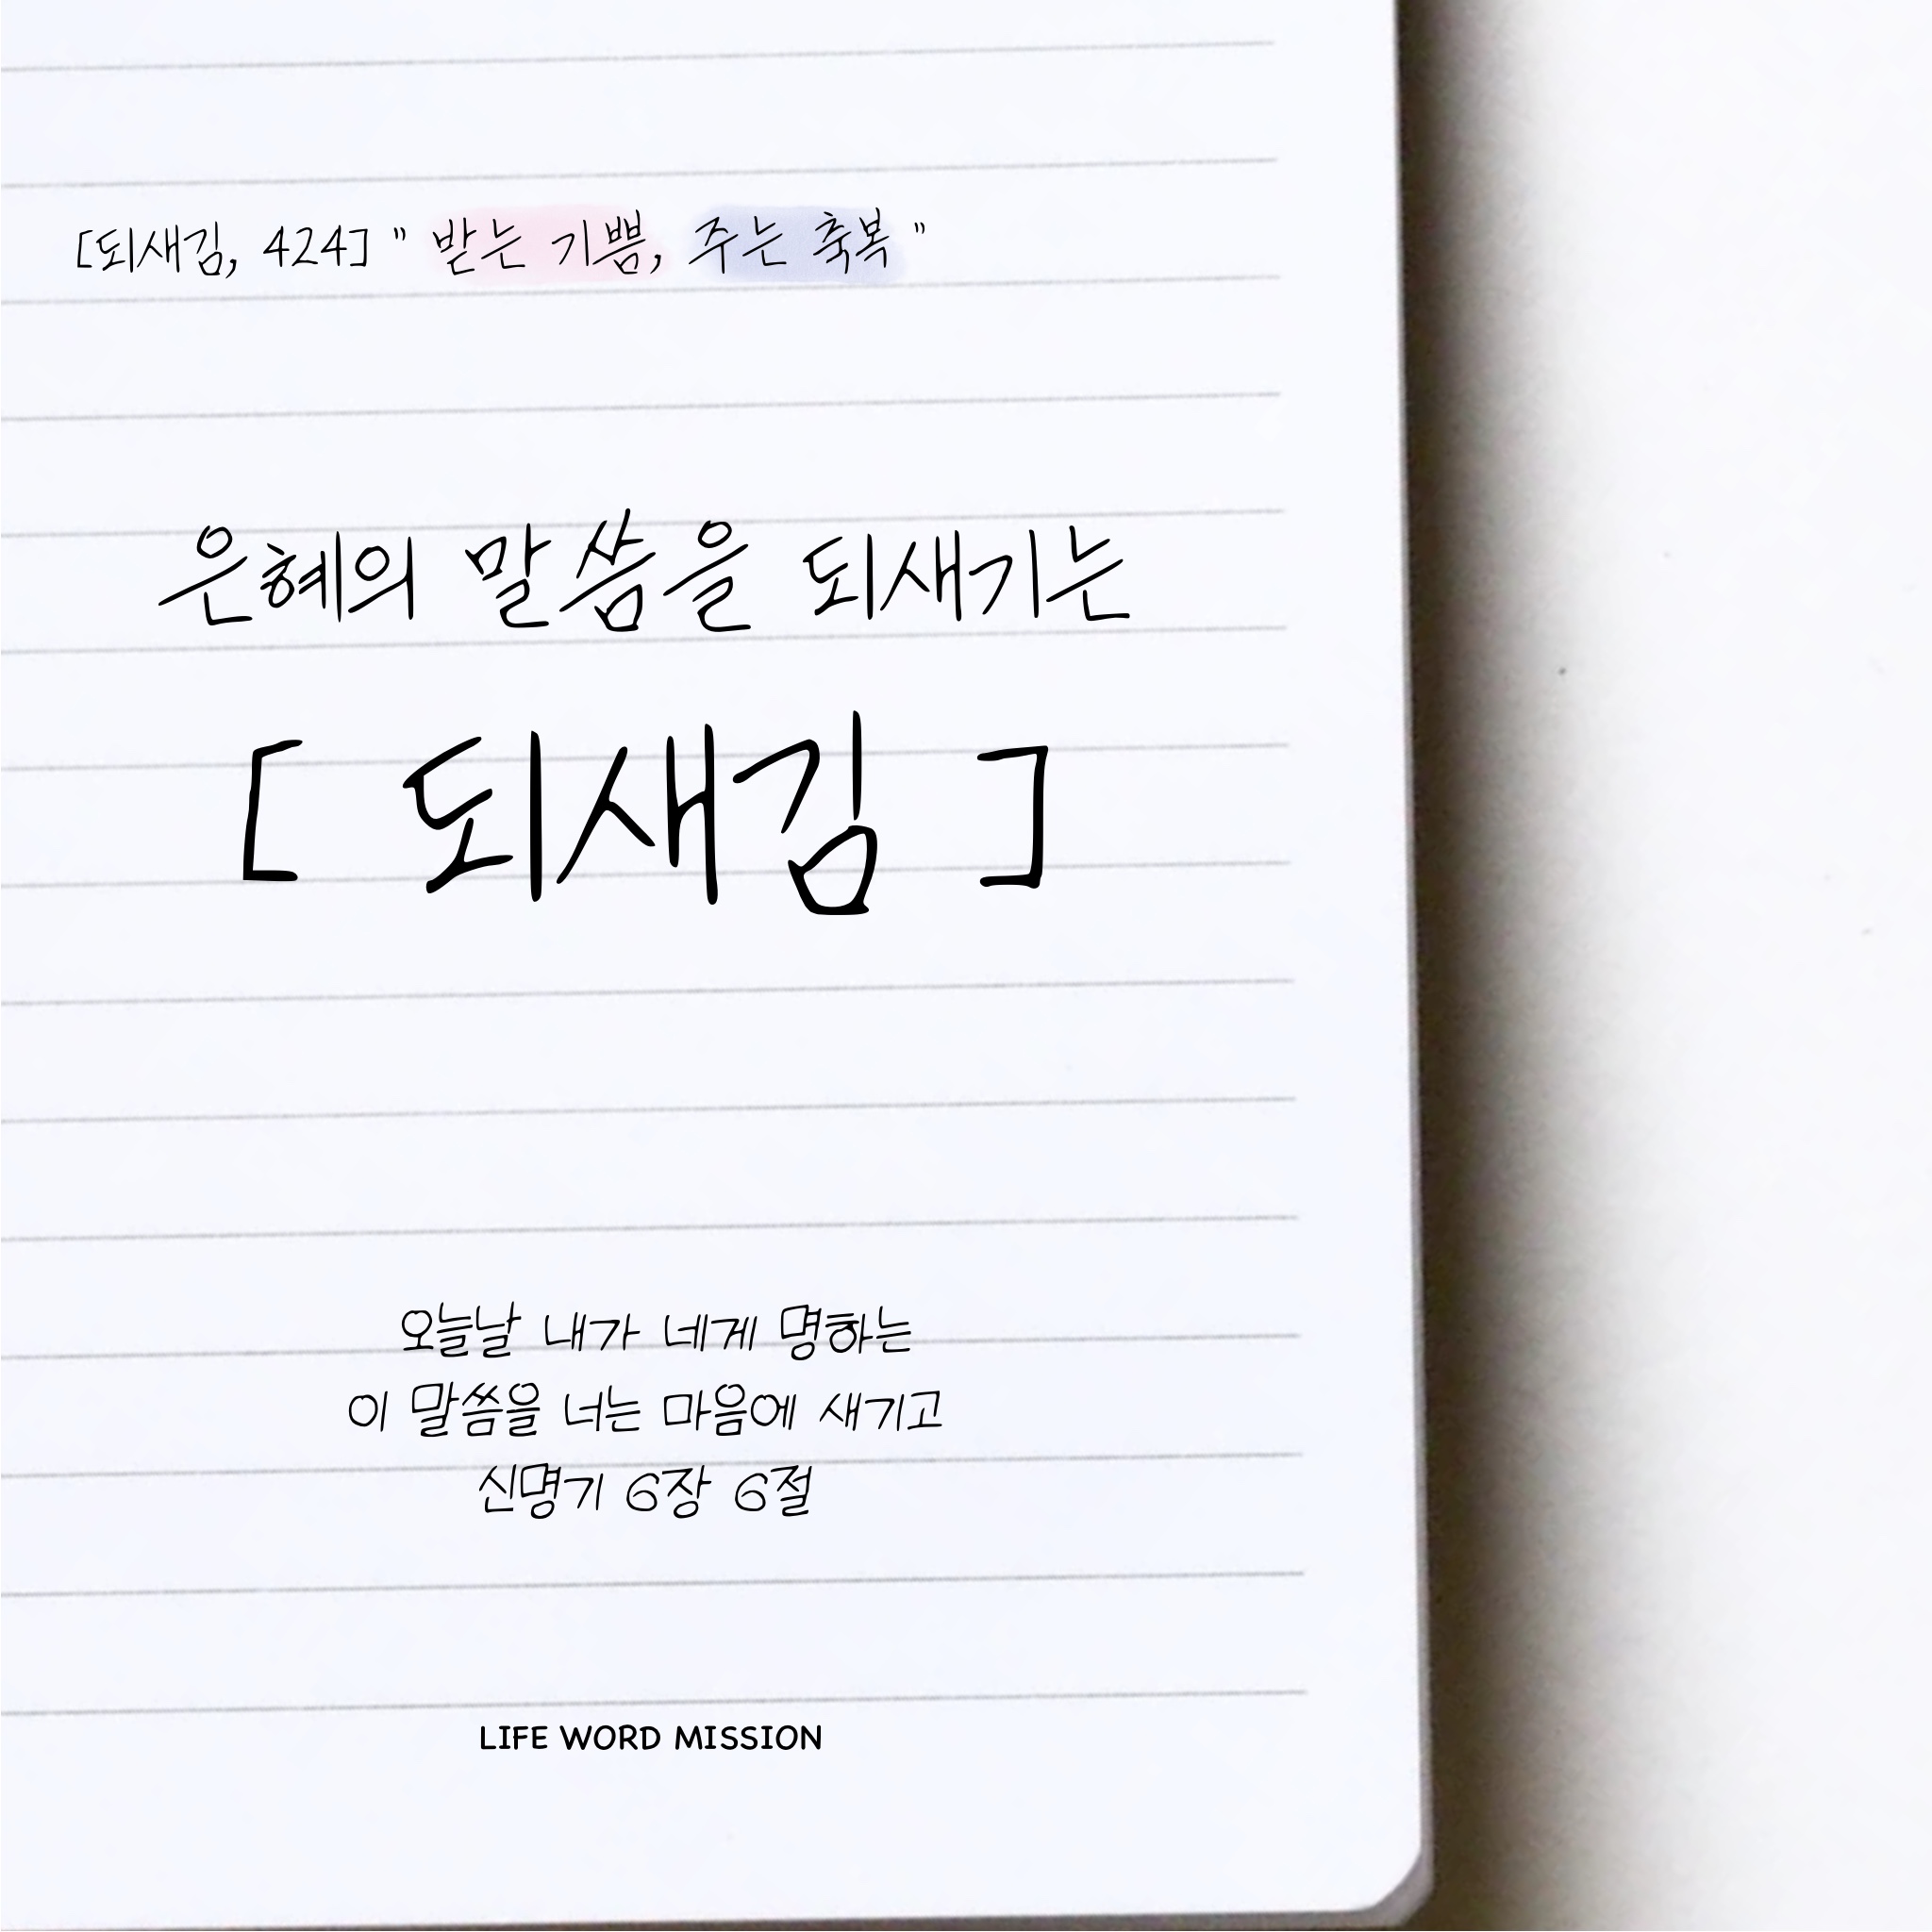 [되새김, 424] " 받는 기쁨, 주는 축복 "
은혜의 말씀을 되새기는
[ 되새김 ]
오늘날 내가 네게 명하는
이 말씀을 너는 마음에 새기고
신명기 6장 6절
LIFE WORD MISSION